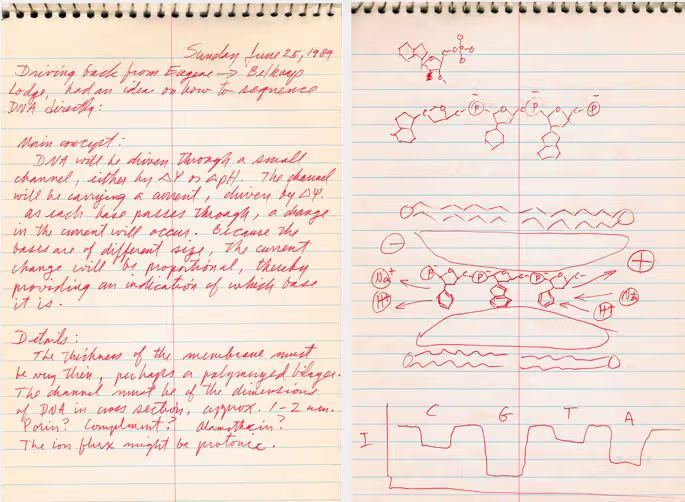 Sunday June 25, 1989
Driving back from Eugene → Belknap
Lodge, had an idea on how to sequence
DNA directly:
Main concept:
DNA will be driven through a small
channel, either by ΔΨ or ΔpH. The channel
will be carrying a current, driven by ΔΨ.
As each base passes through, a change
in the current will occur. Because the
bases are of different size, the current
change will be proportional, thereby
providing an indication of which base
it is.
Details:
The thickness of the membrane must
be very thin, perhaps a polymerized bilayer.
The channel must be of the dimensions
of DNA in cross section, approx. 1-2 nm.
Porin? Compliment? Alamethicin?
The ion flux might be protonic.
O
O P O
O
P P P
− +
Na+ P P P
H+ Na
H+
C G T A
I